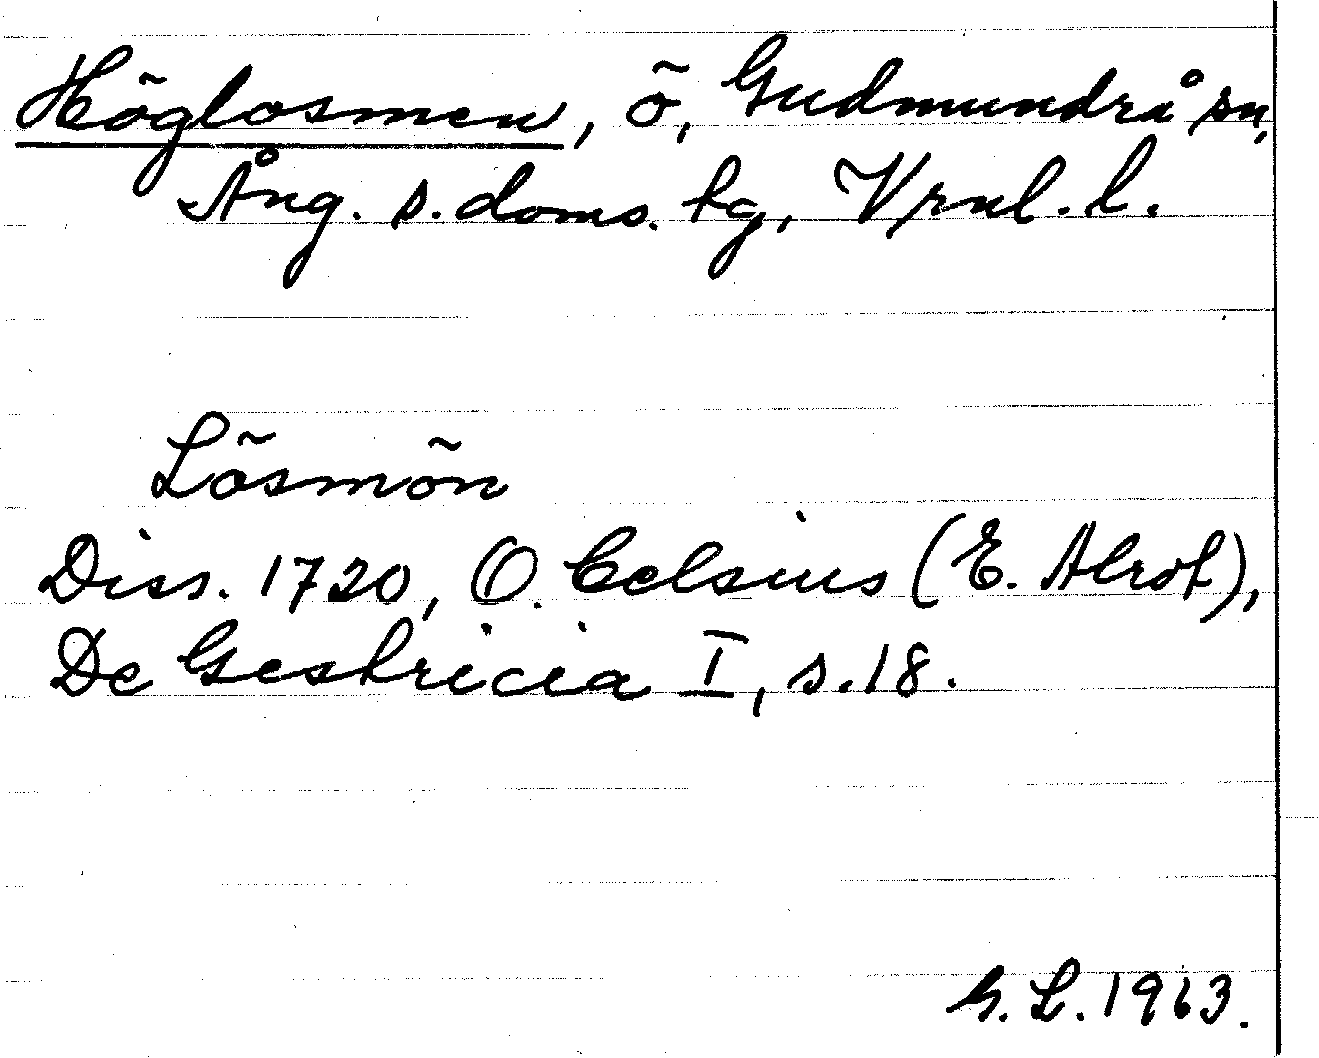 Höglosmen, ö, Gudmundrå sn,
Ång. s. doms. tg, Vrnl. l.
Lösmön
Diss. 1720, O. Celsius (E. Alrot),
De Gestricia I, s. 18.
G. L. 1963.